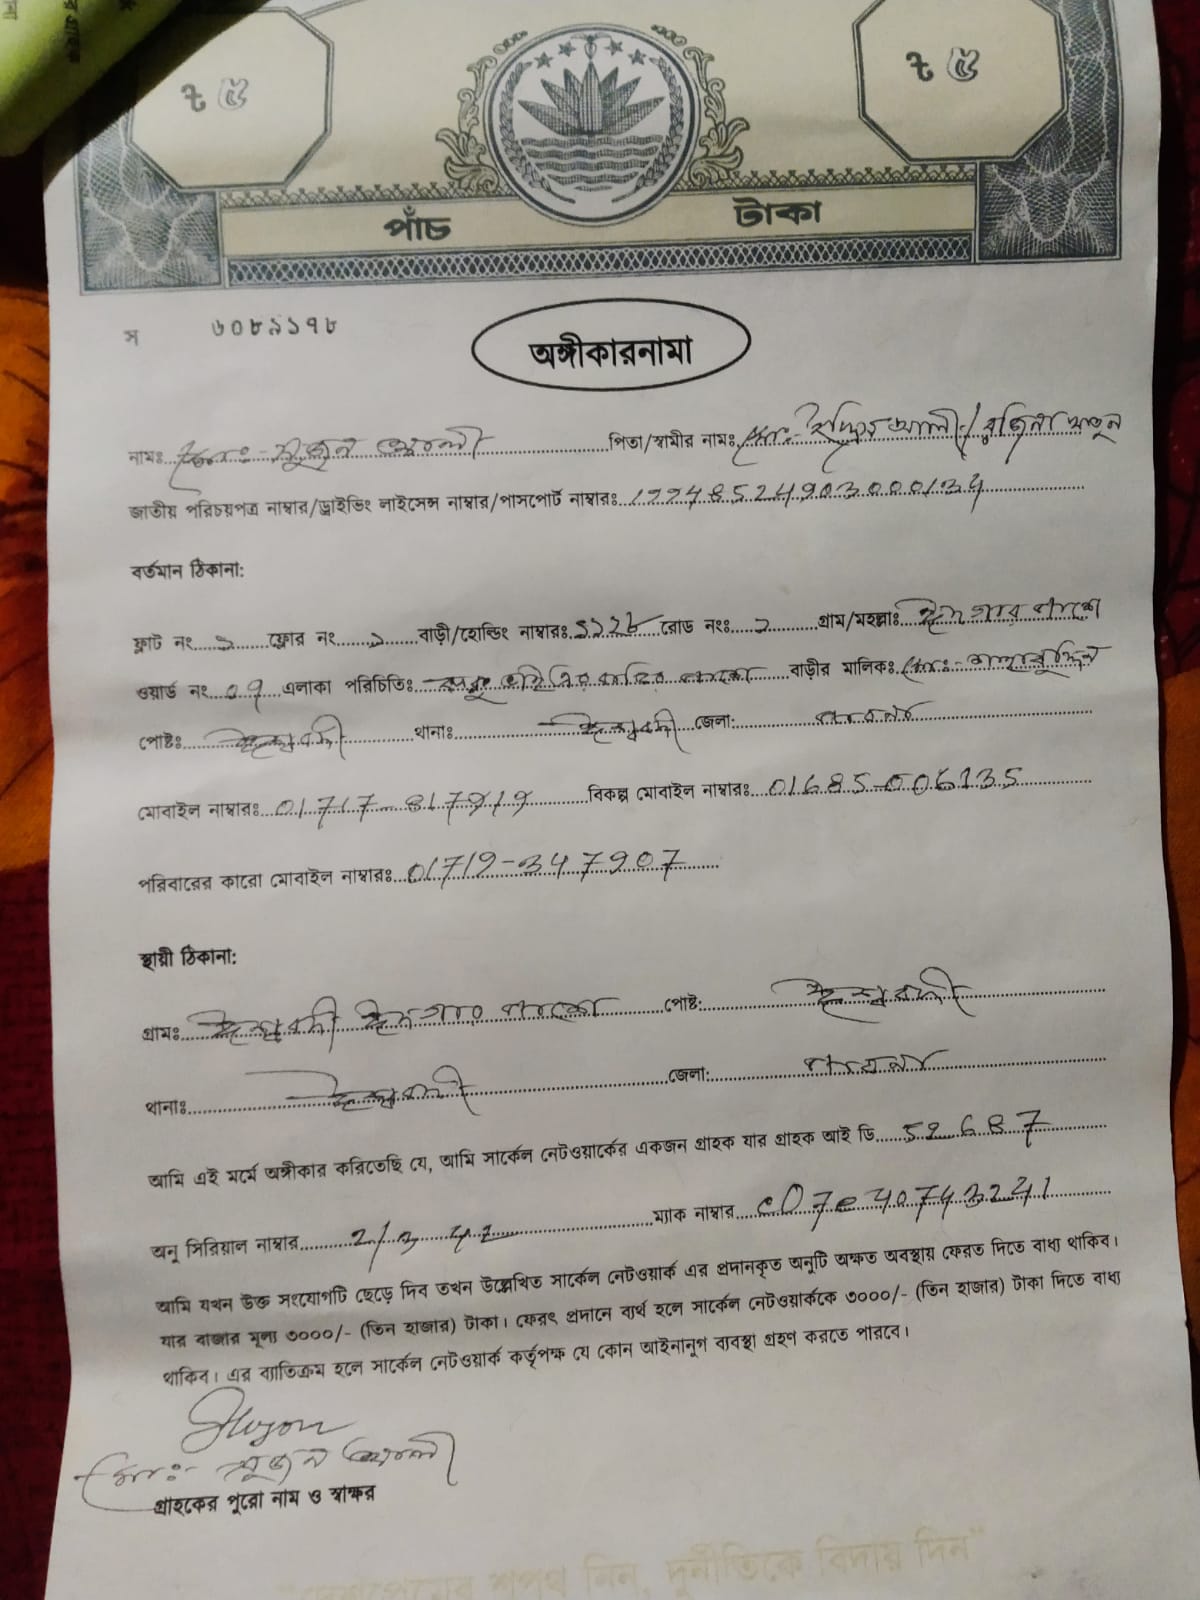 ৳ ৫ ৳ ৫
পাঁচ টাকা
স ৬০৮৯১৭৮
অঙ্গীকারনামা
নামঃ মোঃ- সুজন আলী পিতা/স্বামীর নামঃ মোঃ- আলী / খাতুন
জাতীয় পরিচয়পত্র নাম্বার/ড্রাইভিং লাইসেন্স নাম্বার/পাসপোর্ট নাম্বারঃ
বর্তমান ঠিকানা:
ফ্লাট নং ফ্লোর নং বাড়ী/হোল্ডিং নাম্বারঃ রোড নংঃ গ্রাম/মহল্লাঃ
ওয়ার্ড নং 07 এলাকা পরিচিতিঃ বাড়ীর মালিকঃ মোঃ-
পোষ্টঃ ঈশ্বরদী থানাঃ ঈশ্বরদী জেলা: পাবনা
মোবাইল নাম্বারঃ 01717-817919 বিকল্প মোবাইল নাম্বারঃ 01685-006135
পরিবারের কারো মোবাইল নাম্বারঃ 01719-347907
স্থায়ী ঠিকানা:
গ্রামঃ ঈশ্বরদী পোষ্ট: ঈশ্বরদী
থানাঃ ঈশ্বরদী জেলা: পাবনা
আমি এই মর্মে অঙ্গীকার করিতেছি যে, আমি সার্কেল নেটওয়ার্কের একজন গ্রাহক যার গ্রাহক আই ডি 52687
অনু সিরিয়াল নাম্বার ম্যাক নাম্বার
আমি যখন উক্ত সংযোগটি ছেড়ে দিব তখন উল্লেখিত সার্কেল নেটওয়ার্ক এর প্রদানকৃত অনুটি অক্ষত অবস্থায় ফেরত দিতে বাধ্য থাকিব।
যার বাজার মূল্য ৩০০০/- (তিন হাজার) টাকা। ফেরৎ প্রদানে ব্যর্থ হলে সার্কেল নেটওয়ার্ককে ৩০০০/- (তিন হাজার) টাকা দিতে বাধ্য
থাকিব। এর ব্যাতিক্রম হলে সার্কেল নেটওয়ার্ক কর্তৃপক্ষ যে কোন আইনানুগ ব্যবস্থা গ্রহণ করতে পারবে।
Sujon
মোঃ- সুজন আলী
গ্রাহকের পুরো নাম ও স্বাক্ষর
"দেশপ্রেমের শপথ নিন, দুর্নীতিকে বিদায় দিন"